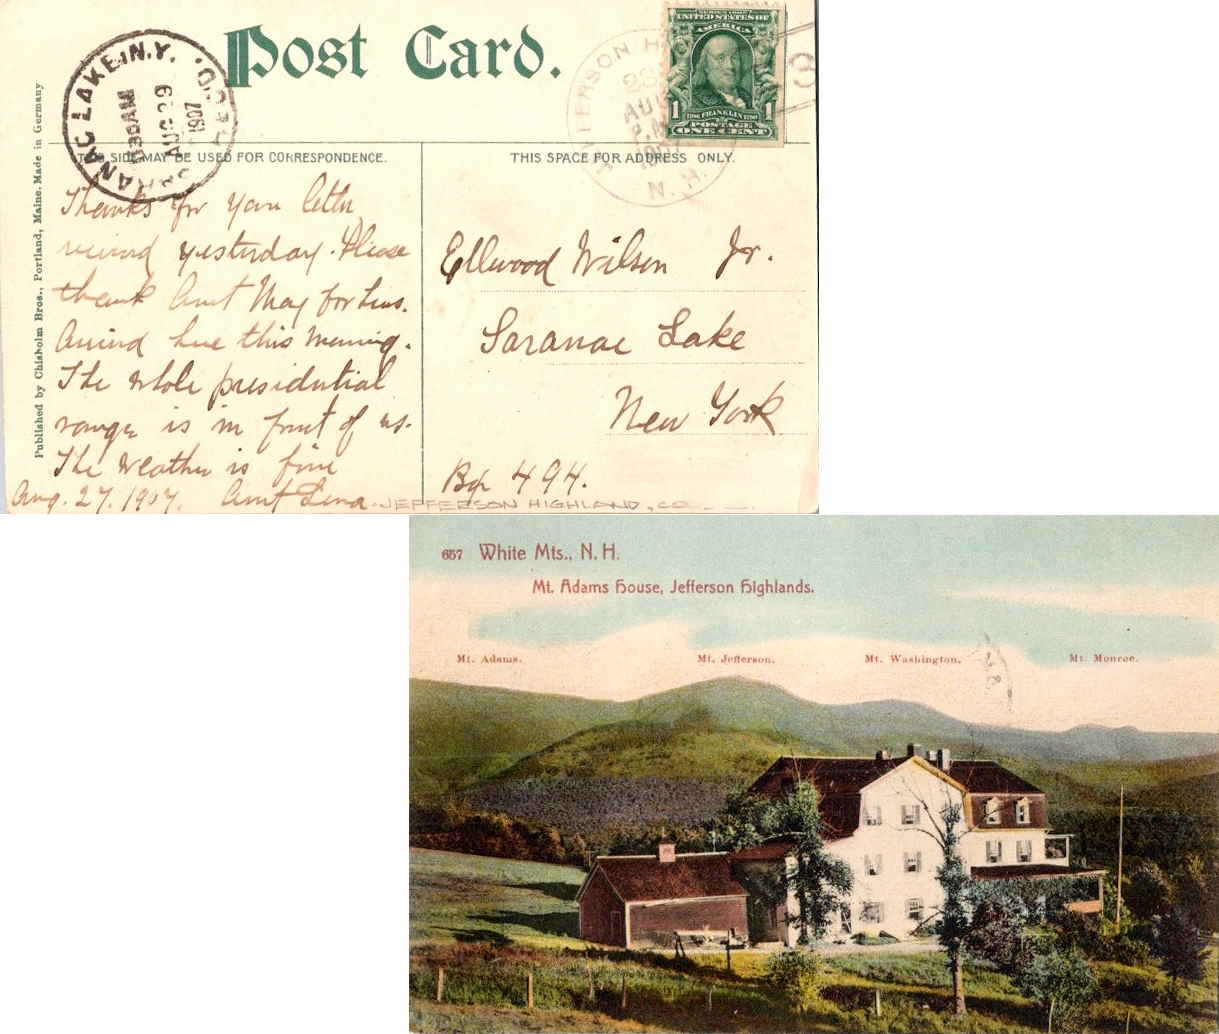 Post Card.
UNITED STATES OF
AMERICA
1 FRANKLIN 1
POSTAGE
ONE CENT
SARANAC LAKE, N.Y.
AUG 29
1907
JEFFERSON H
AUG
P.M
1907
N. H.
3
Published by Chisholm Bros., Portland, Maine. Made in Germany
THIS SIDE MAY BE USED FOR CORRESPONDENCE.
THIS SPACE FOR ADDRESS ONLY.
Thanks for your letter
received yesterday. Please
thank Aunt May for hers.
Arrived here this morning.
The whole presidential
range is in front of us.
The weather is fine
Aug. 27. 1907. Aunt Lena
Ellwood Wilson Jr.
Saranac Lake
New York
Box 494.
JEFFERSON HIGHLAND, CO
657 White Mts., N. H.
Mt. Adams House, Jefferson Highlands.
Mt. Adams. Mt. Jefferson. Mt. Washington. Mt. Monroe.